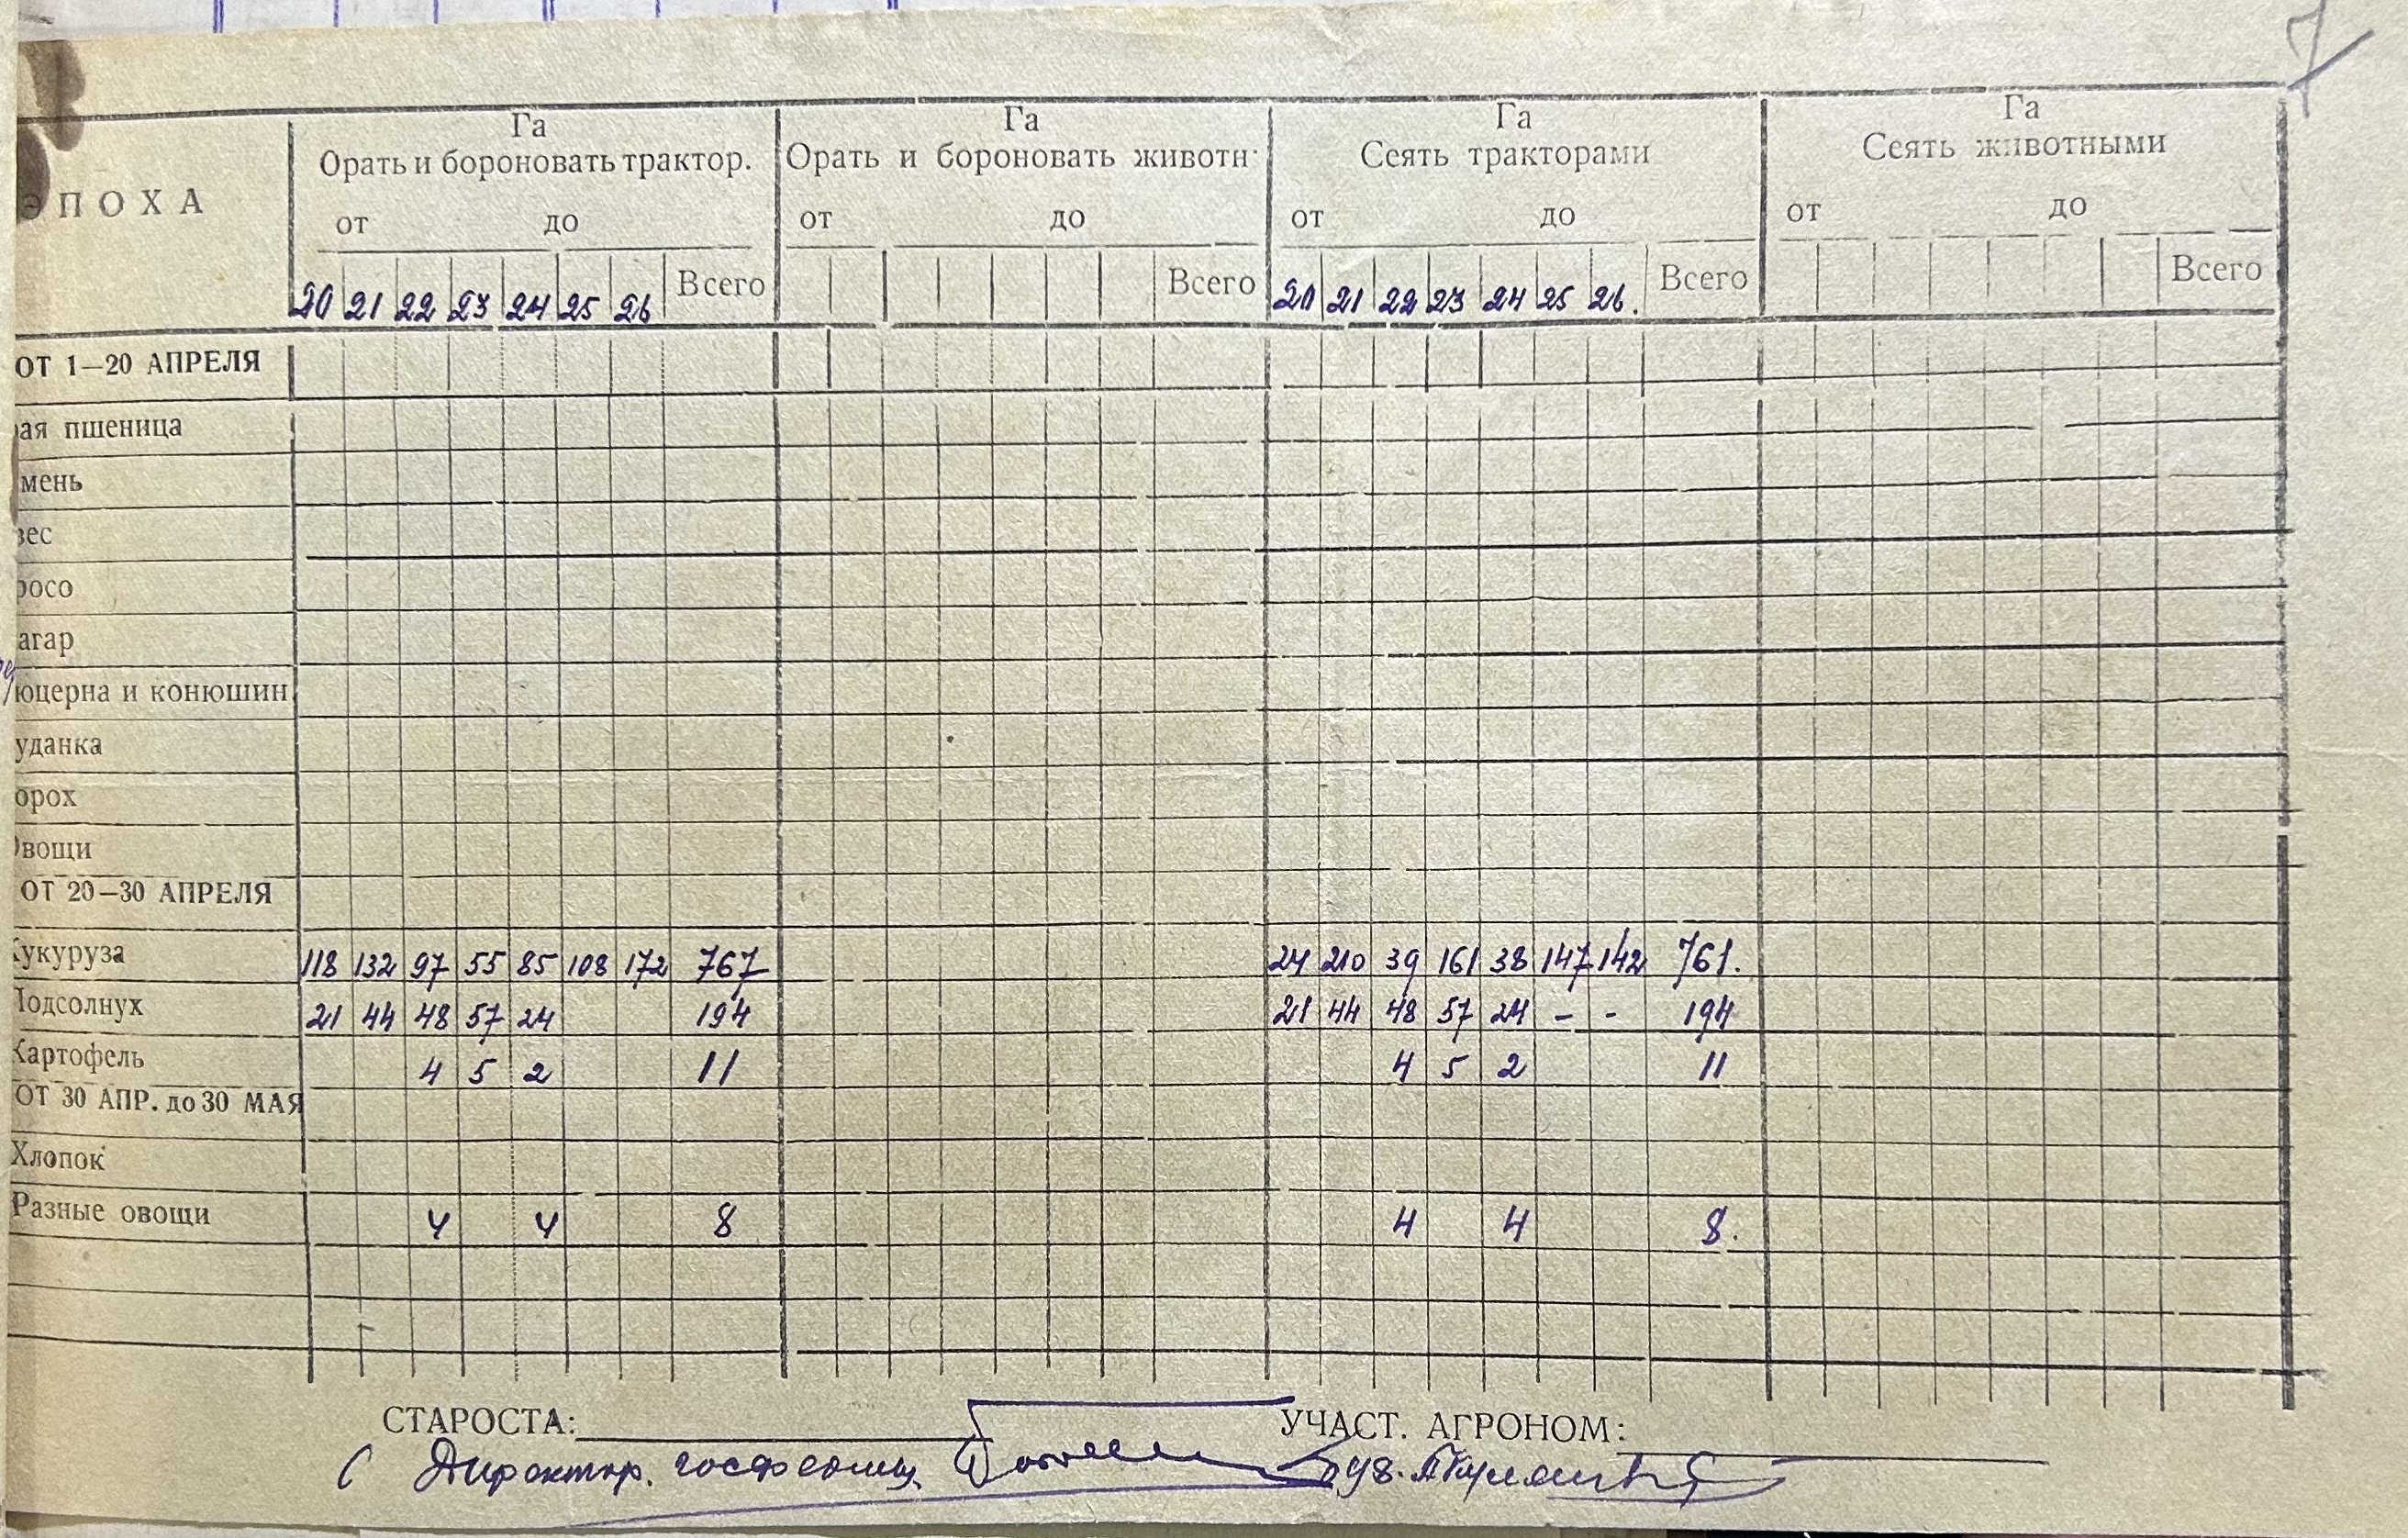 7
Га Га Га Га
Орать и бороновать трактор. Орать и бороновать животн. Сеять тракторами Сеять животными
ЭПОХА
от до от до от до от до
20 21 22 23 24 25 26 Всего Всего 20 21 22 23 24 25 26. Всего Всего
ОТ 1—20 АПРЕЛЯ
рая пшеница
мень
вес
росо
агар
юцерна и конюшин.
уданка
орох
Овощи
ОТ 20—30 АПРЕЛЯ
Кукуруза 118 132 97 55 85 108 172 767 24 210 39 161 38 147 142 761.
Подсолнух 21 44 48 57 24 194 21 44 48 57 24 - - 194
Картофель 4 5 2 11 4 5 2 11
ОТ 30 АПР. до 30 МАЯ
Хлопок
Разные овощи 4 4 8 4 4 8.
СТАРОСТА: УЧАСТ. АГРОНОМ:
Директор.